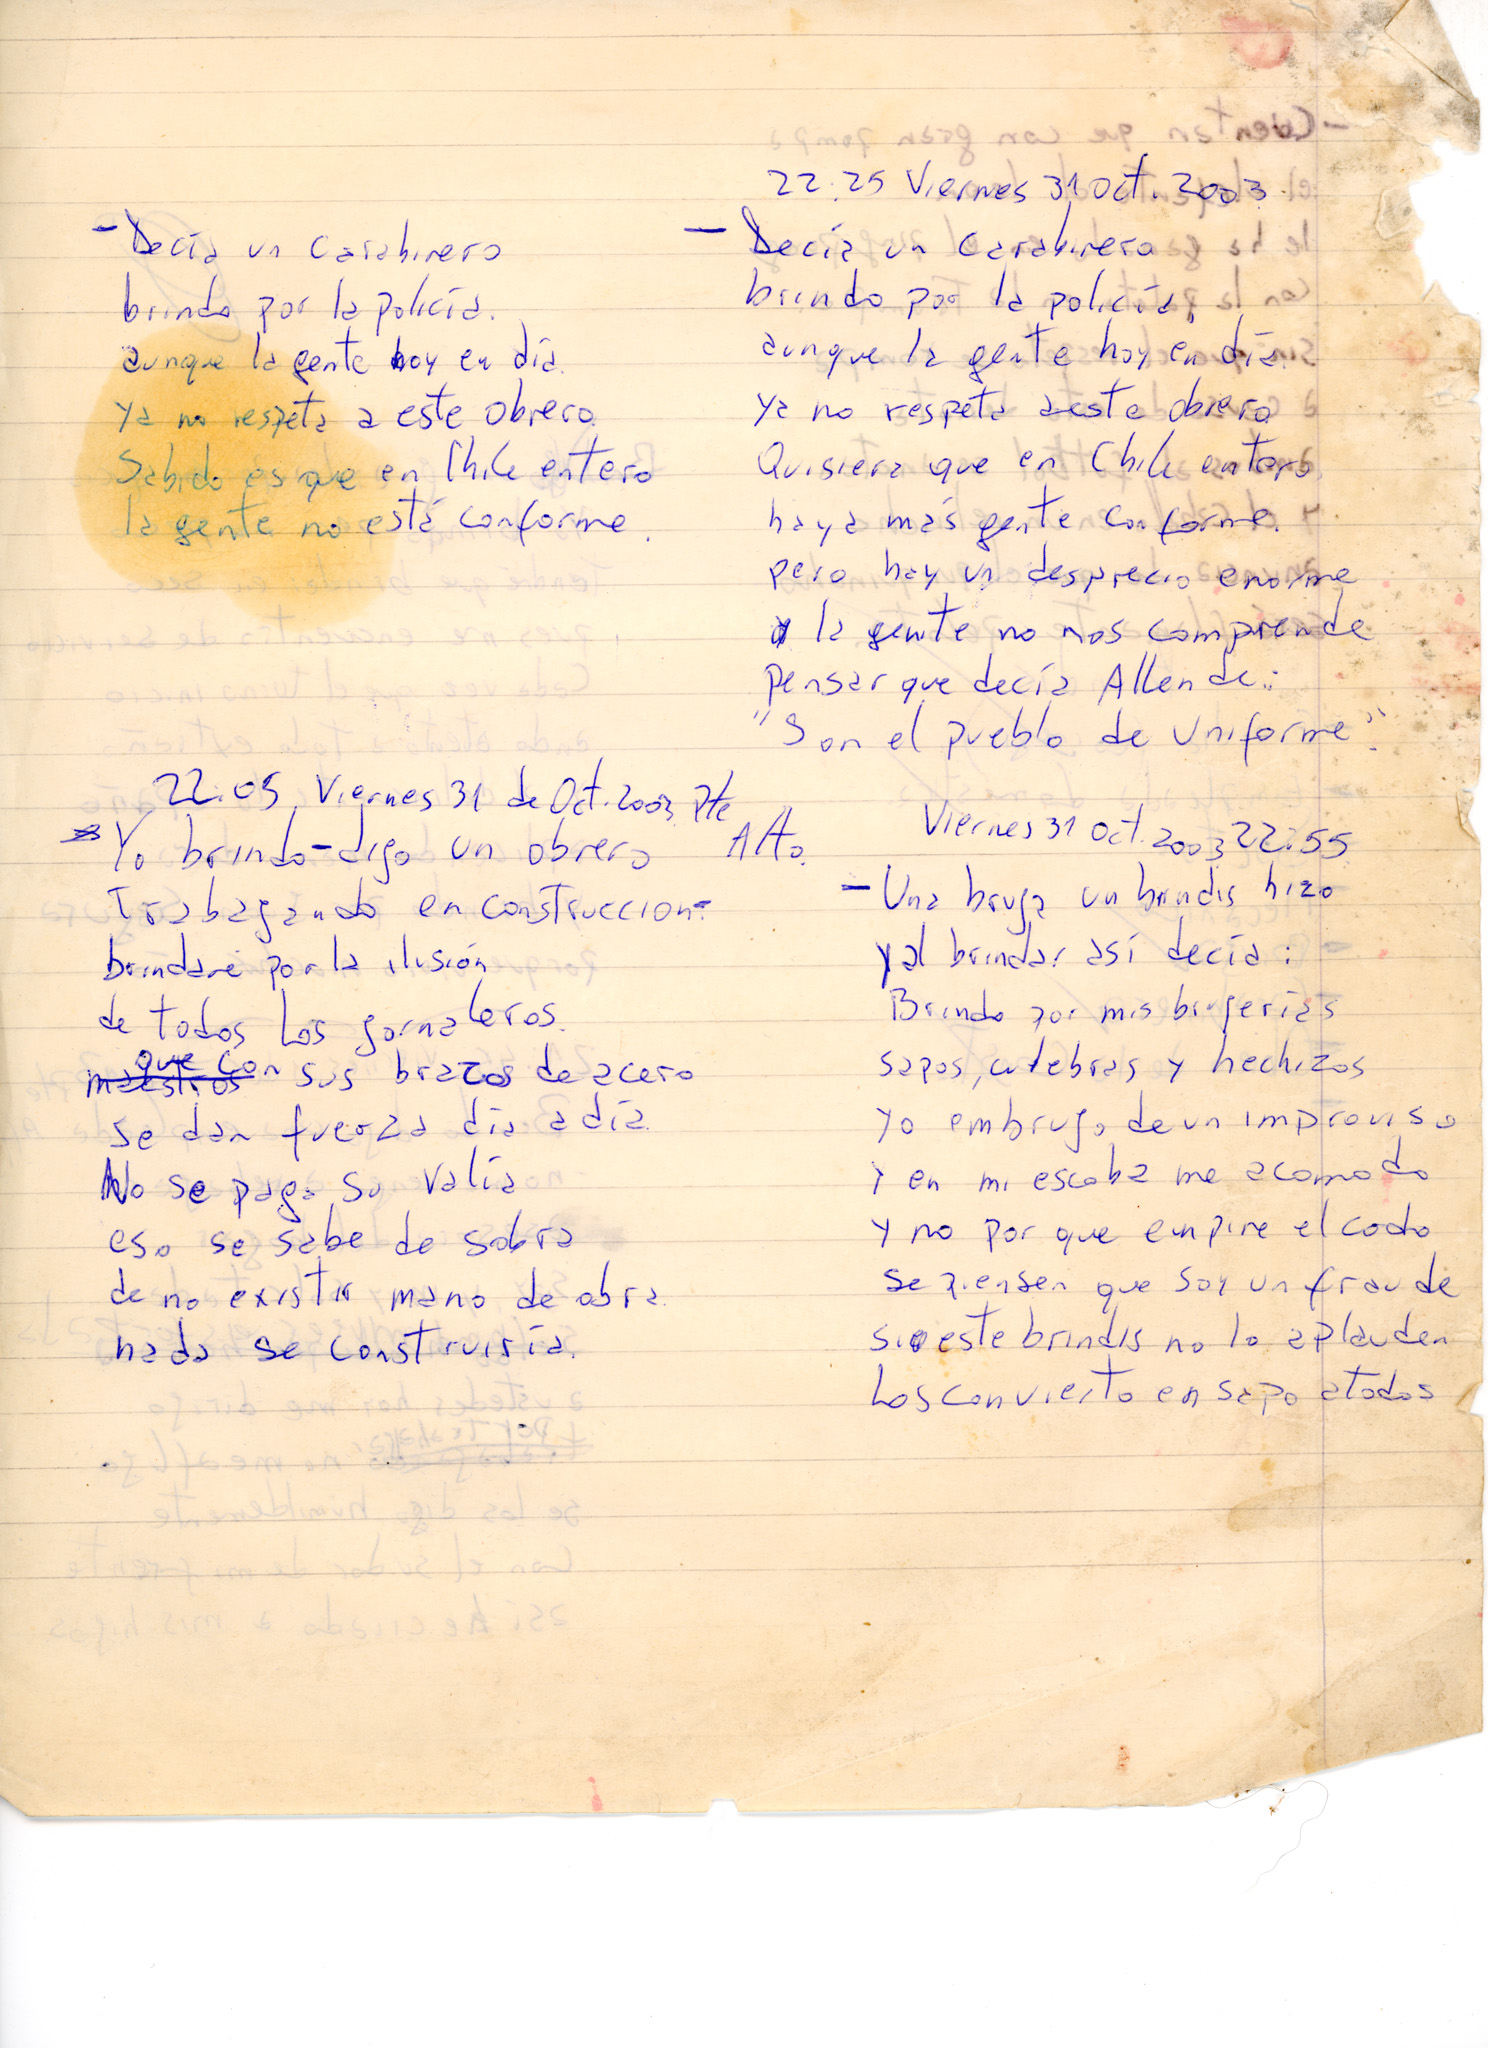 - Decía un Carabinero
brindo por la policía.
aunque la gente hoy en día.
ya no respeta a este obrero.
Sabido es que en Chile entero
la gente no está conforme.
22:25 Viernes 31 Oct. 2003.
- Decía un Carabinero
brindo por la policía,
aunque la gente hoy en día.
ya no respeta a este obrero
Quisiera que en Chile entero.
haya más gente conforme.
pero hay un desprecio enorme
y la gente no nos comprende
pensar que decía Allende:
"Son el pueblo de Uniforme".
22:05 Viernes 31 de Oct. 2003 Pte
Alto.
- Yo brindo-digo un obrero
Trabagando en construccion-
brindaré por la ilusión
de todos los jornaleros.
que con sus brazos de acero
se dan fuerza día a día.
No se paga su valía
eso se sabe de sobra
de no existir mano de obra.
nada se construiría.
Viernes 31 Oct. 2003 22:55
- Una bruja un brindis hizo
y al brindar así decía:
Brindo por mis brujerías
sapos, culebras y hechizos
yo embrujo de un improviso
y en mi escoba me acomodo
y no por que empine el codo
se piensen que soy un fraude
si este brindis no lo aplauden
Los convierto en sapo a todos